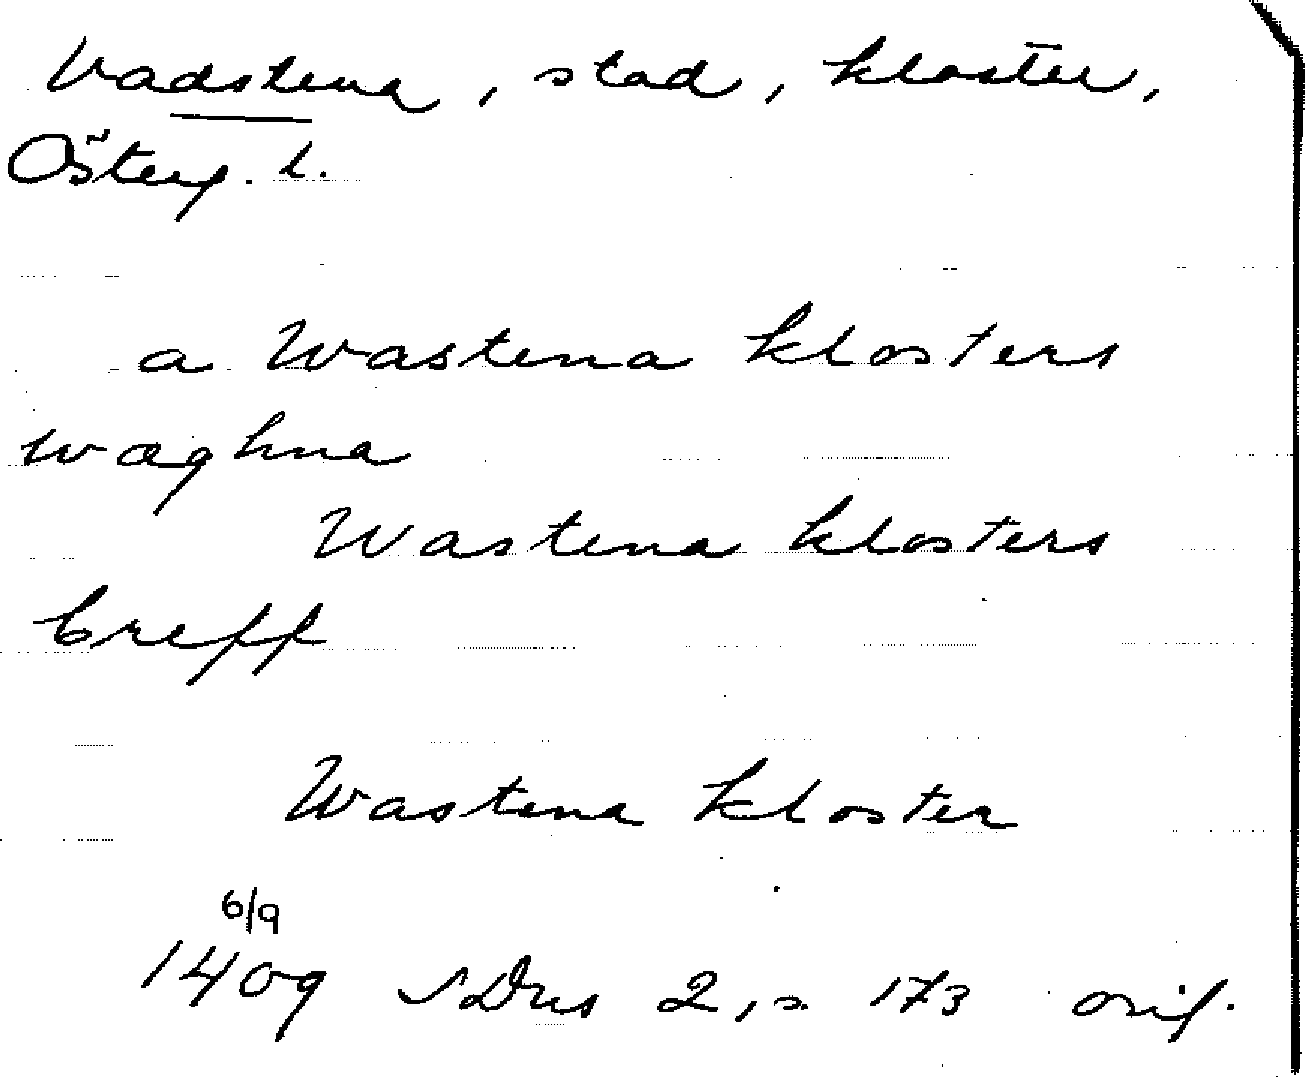 Vadstena, stad, kloster,
Österg. l.
a Wastena klosters
wæghna
Wastena klosters
breff
Wastena kloster
6/9
1409 SDns 2, s. 173 orig.